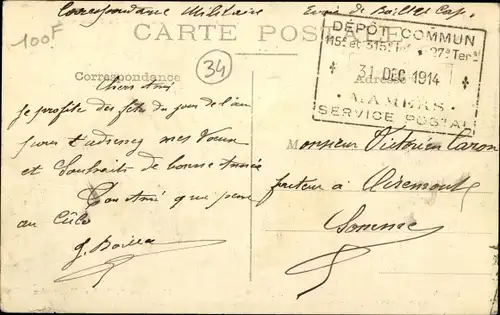 Correspondance Militaire
100F
CARTE POSTALE
DÉPÔT COMMUN
115e et 315e Inf 27e Ter
31 DEC 1914
MAMERS
SERVICE POSTAL
34
Correspondance
Adresse
Cher Ami
Je profite des fêtes du jour de l'an
pour t'adresser mes Voeux
et Souhaits de bonne Année
Ton Ami qui pense
au
Monsieur Victorien Caron
facteur à
Somme